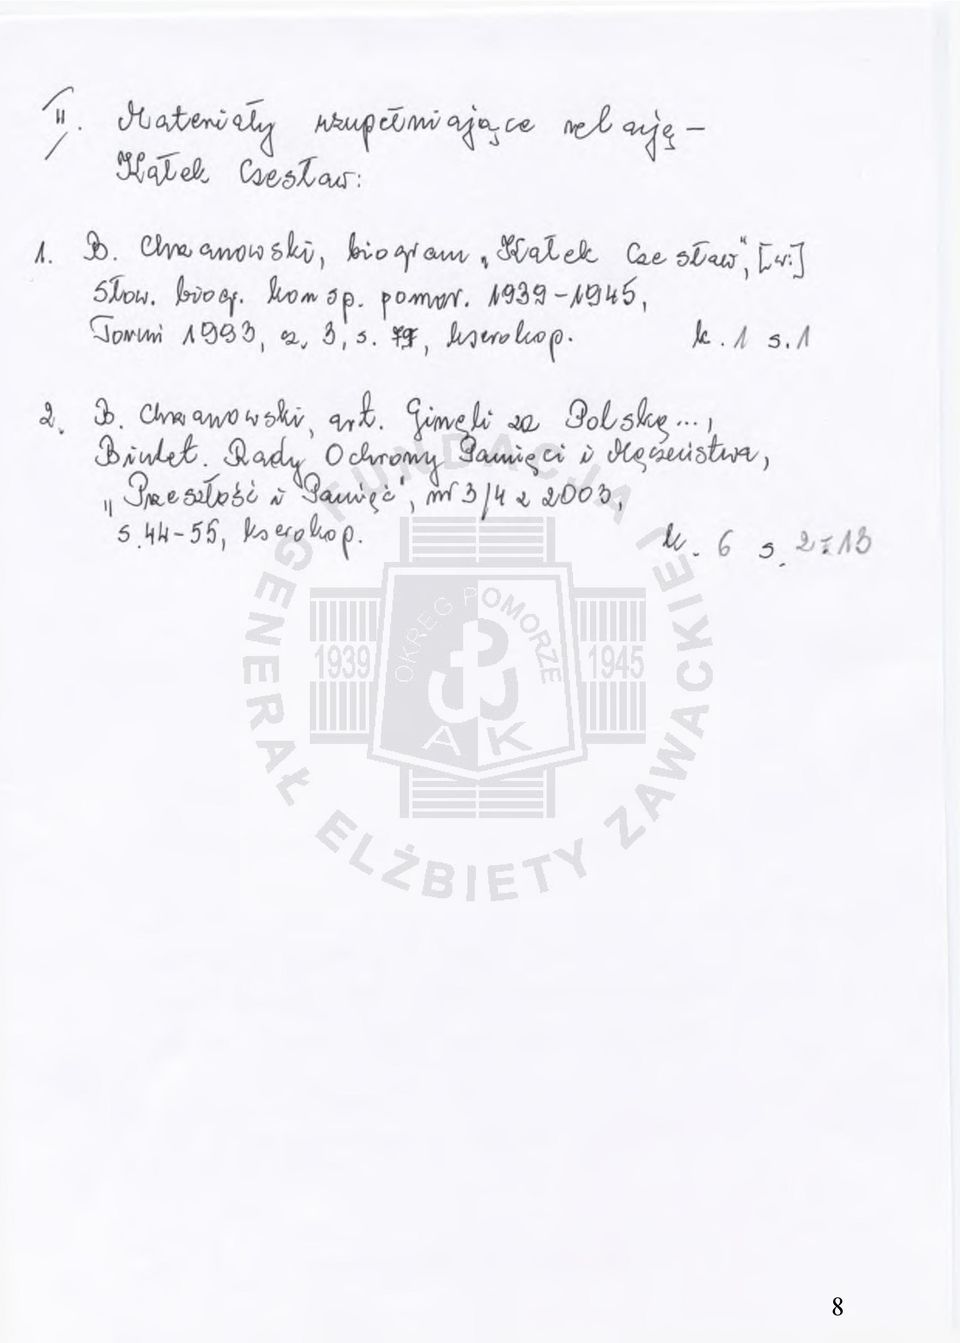 II. Materiały uzupełniające relację –
Kątek Czesław:
1. B. Chrzanowski, biogram „Kątek Czesław", [w:]
Słow. biogr. konsp. pomor. 1939–1945,
Toruń 1993, cz. 3, s. , kserokop. k. 1 s. 1
2. B. Chrzanowski, art. Ginęli za Polskę...,
Biulet. Rady Ochrony Pamięci i Męczeństwa,
„Przeszłość i Pamięć", nr 3/4 z 2003,
s. 44-55, kserokop. k. 6 s. 2-13
FUNDACJA GENERAŁ ELŻBIETY ZAWACKIEJ
OKRĘG POMORZE
1939 1945
AK
8